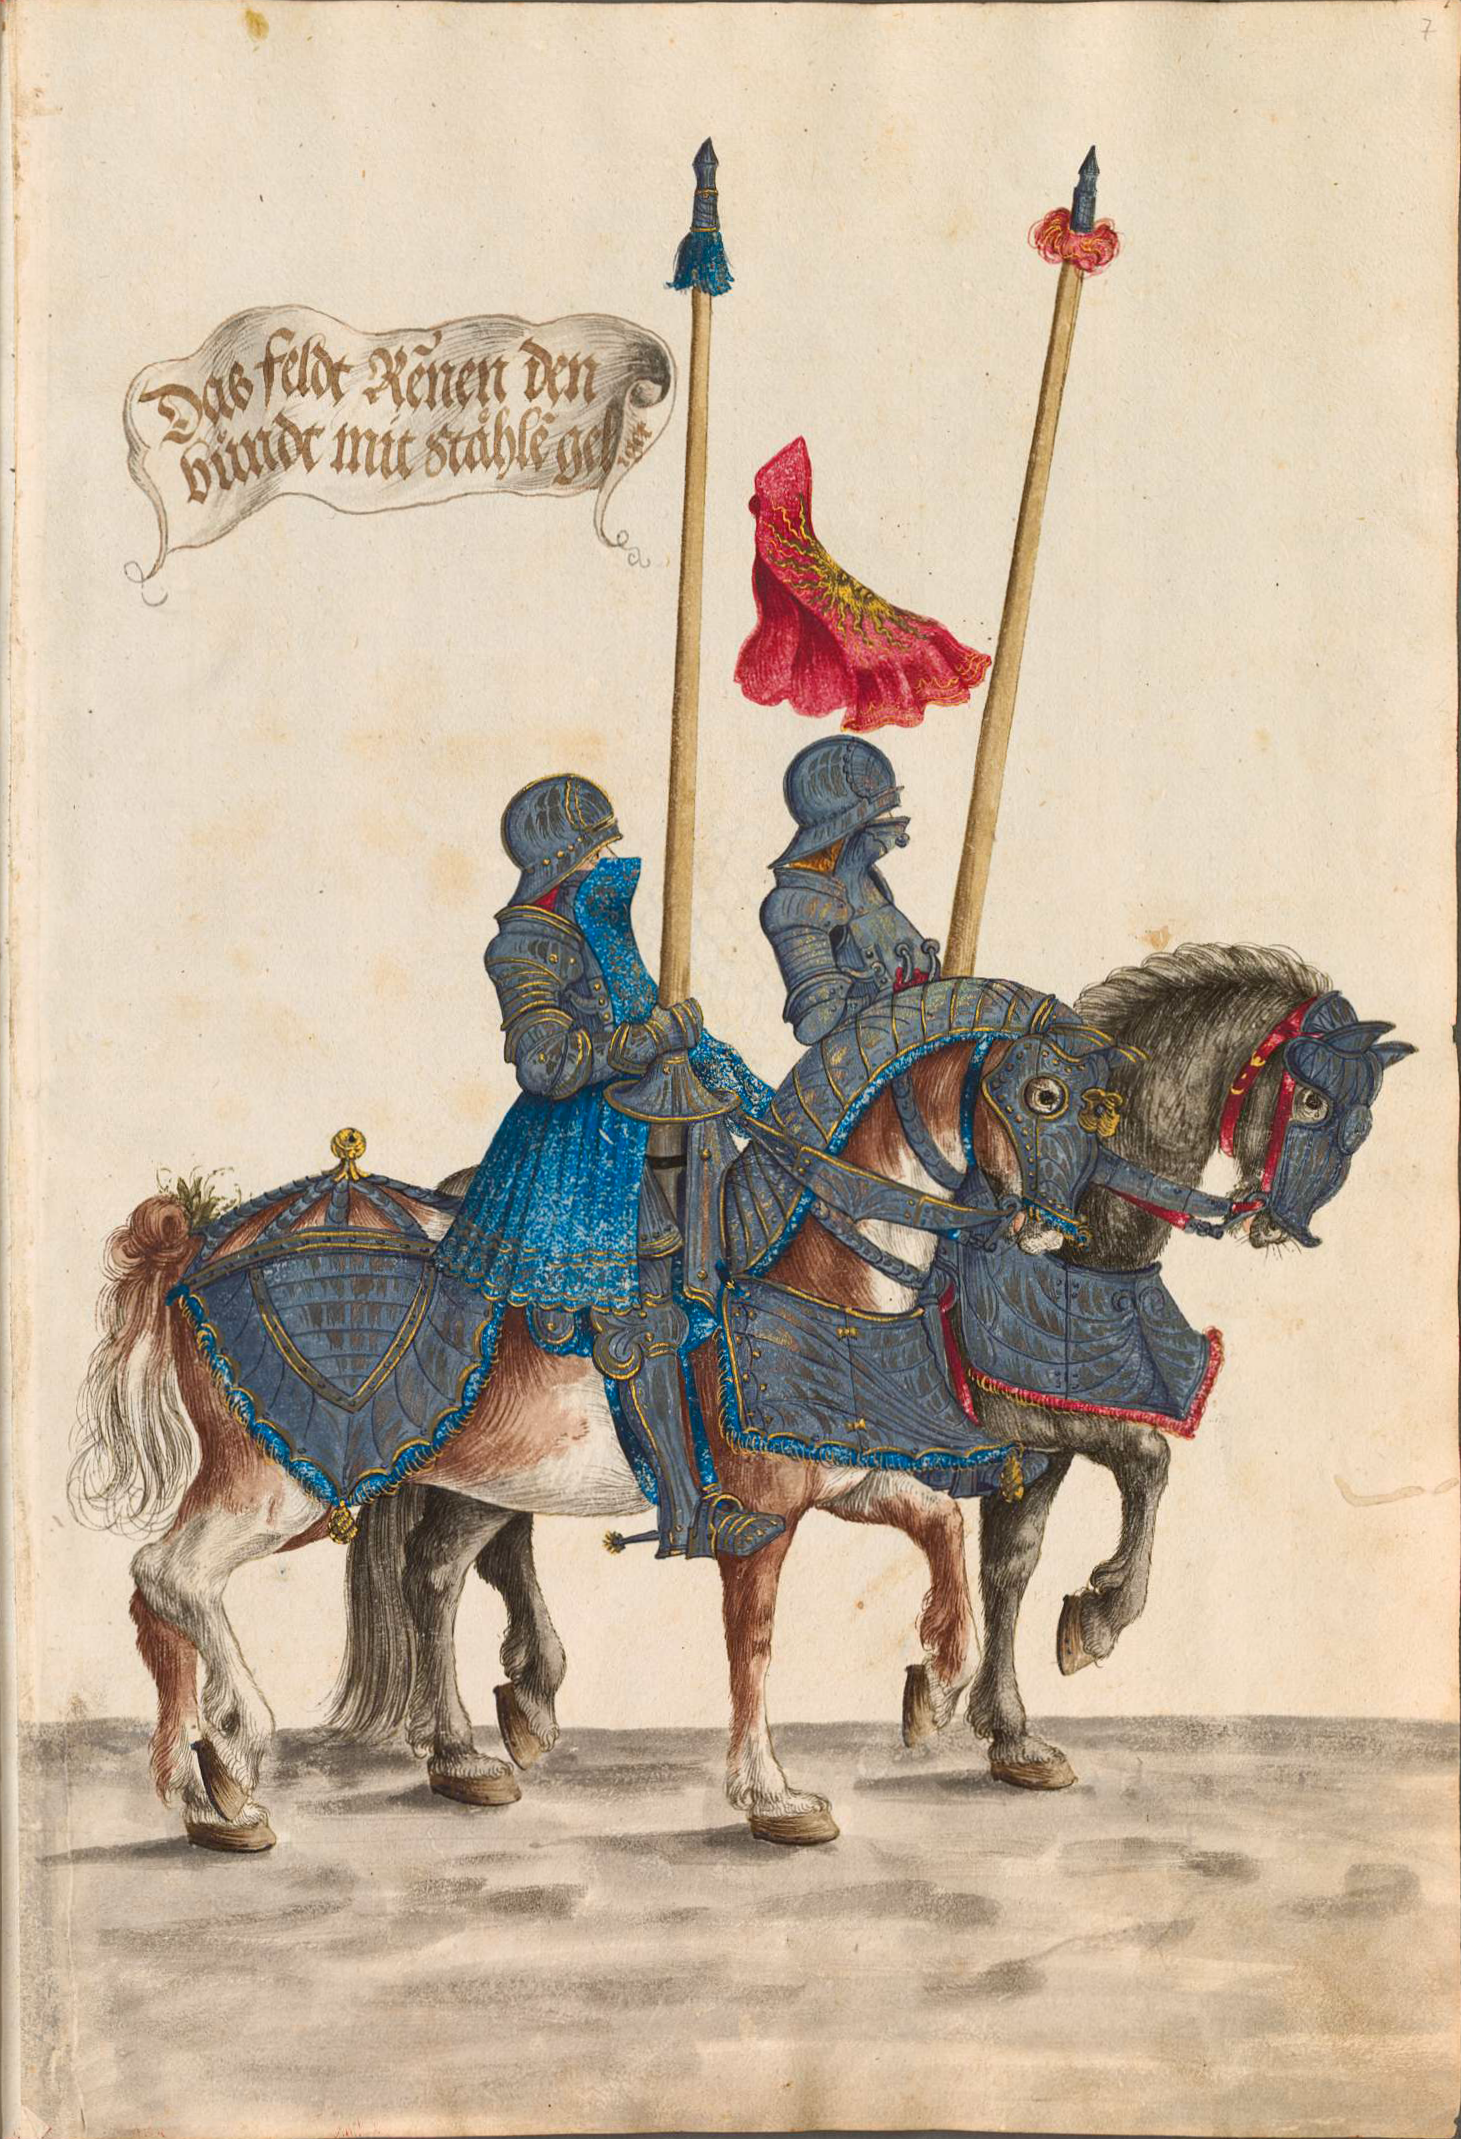 7
Das feldt Rēnen den
bundt mit ståhlē geliger